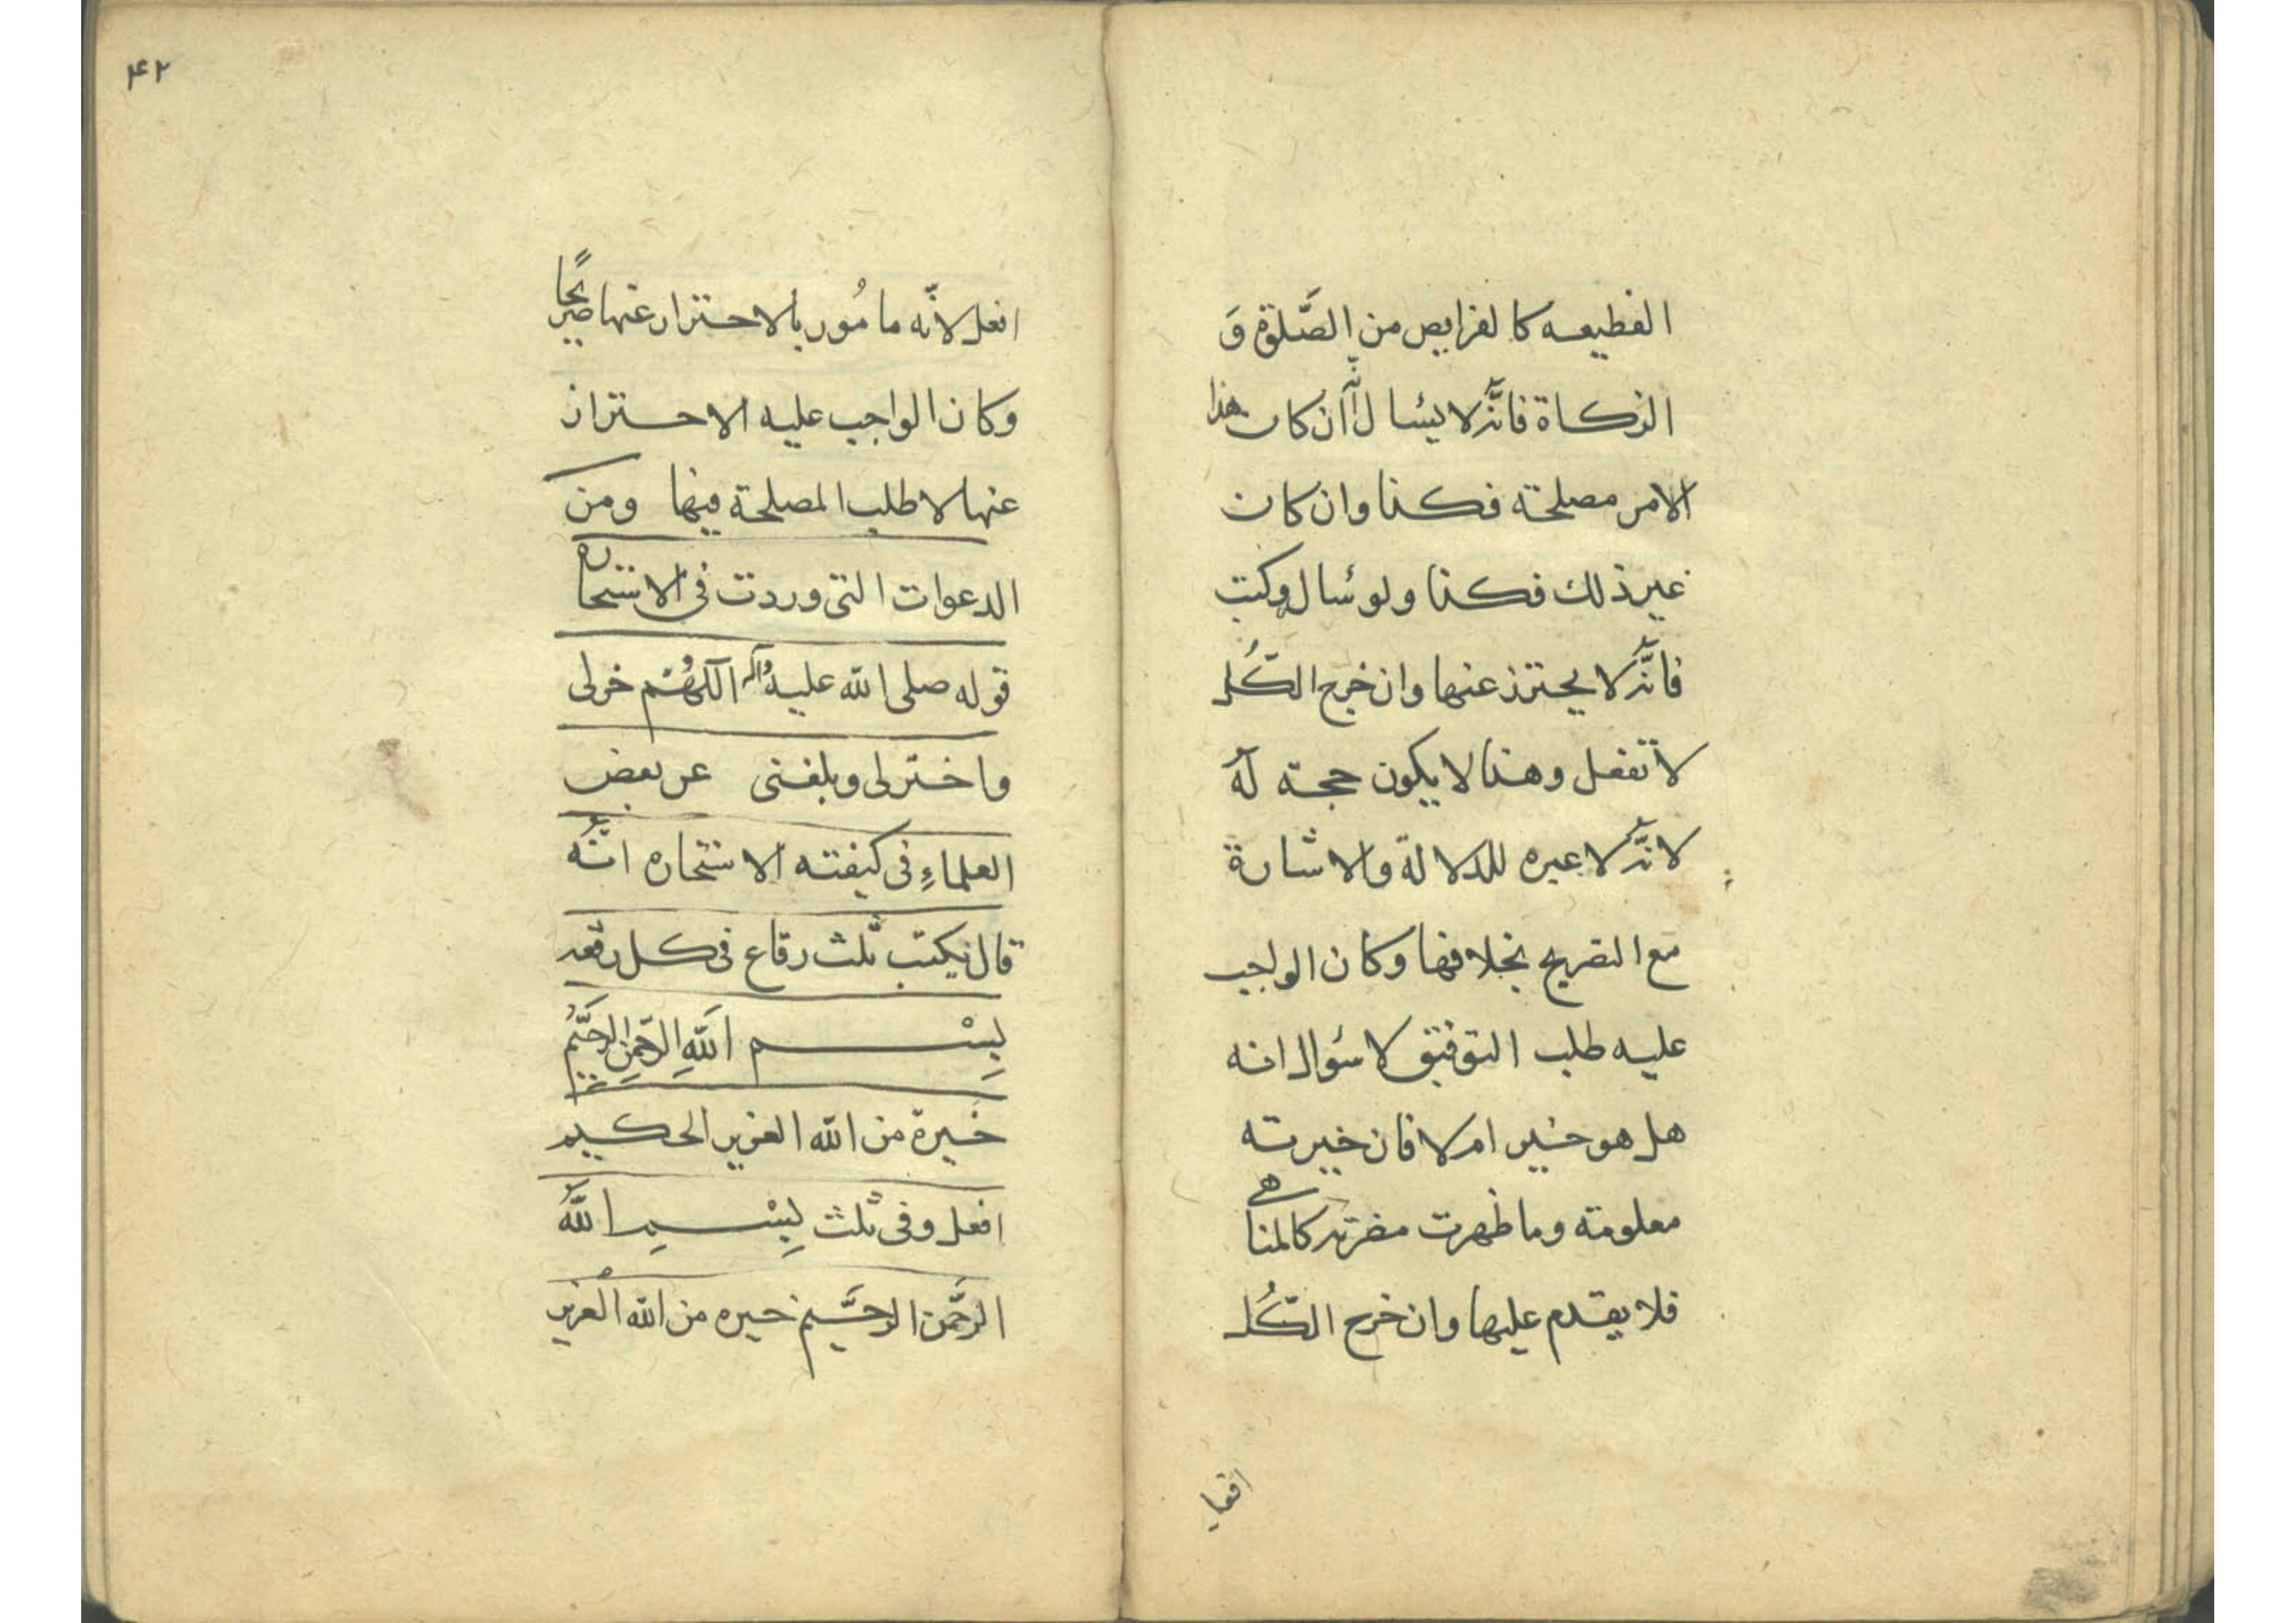 الفطيعه كالفرايص من الصَّلوة وَ
الزكاة فانَّه لا يسٔال انّه ان كان هذا
الامر مصلحته فكذا وان كان
غير ذلك فكذا ولو سٔال وكتب
فانَّه لا يحترز عنها وان خرج الكُل
لا تفعل وهذا لا يكون حجة له
لانَّه لا عبره للدلالة والاشارة
مع التصريح بخلافها وكان الواجب
عليه طلب التوفيق لا سئوال انه
هل هو خير ام لا فان خيرته
معلومته وما ظهرت مضرته كالمناهى
فلا يقدم عليها وان خرج الكُل
افعل
۴۲
افعل لانّه مامُور بالاحتراز عنها صريحًا
وكان الواجب عليه الاحتراز
عنها لا طلب المصلحة فيها ومن
الدعوات التى وردت فى الاستخاره
قوله صلى الله عليه وآله اللهُم خرلى
واخترلى وبلغنى عن بعض
العلماءِ فى كيفته الاستخاره انَّه
قال يكتب ثلث رقاع فى كل رقعه
بِسْم اللهِ الرَّحمنِ الرحَّيمُ
خَيرة من الله العزيز الحكيم
افعل وفى ثلث بِسْمِ اللَّه
الرحَّمن الرحَّيم خيره من الله العزيز